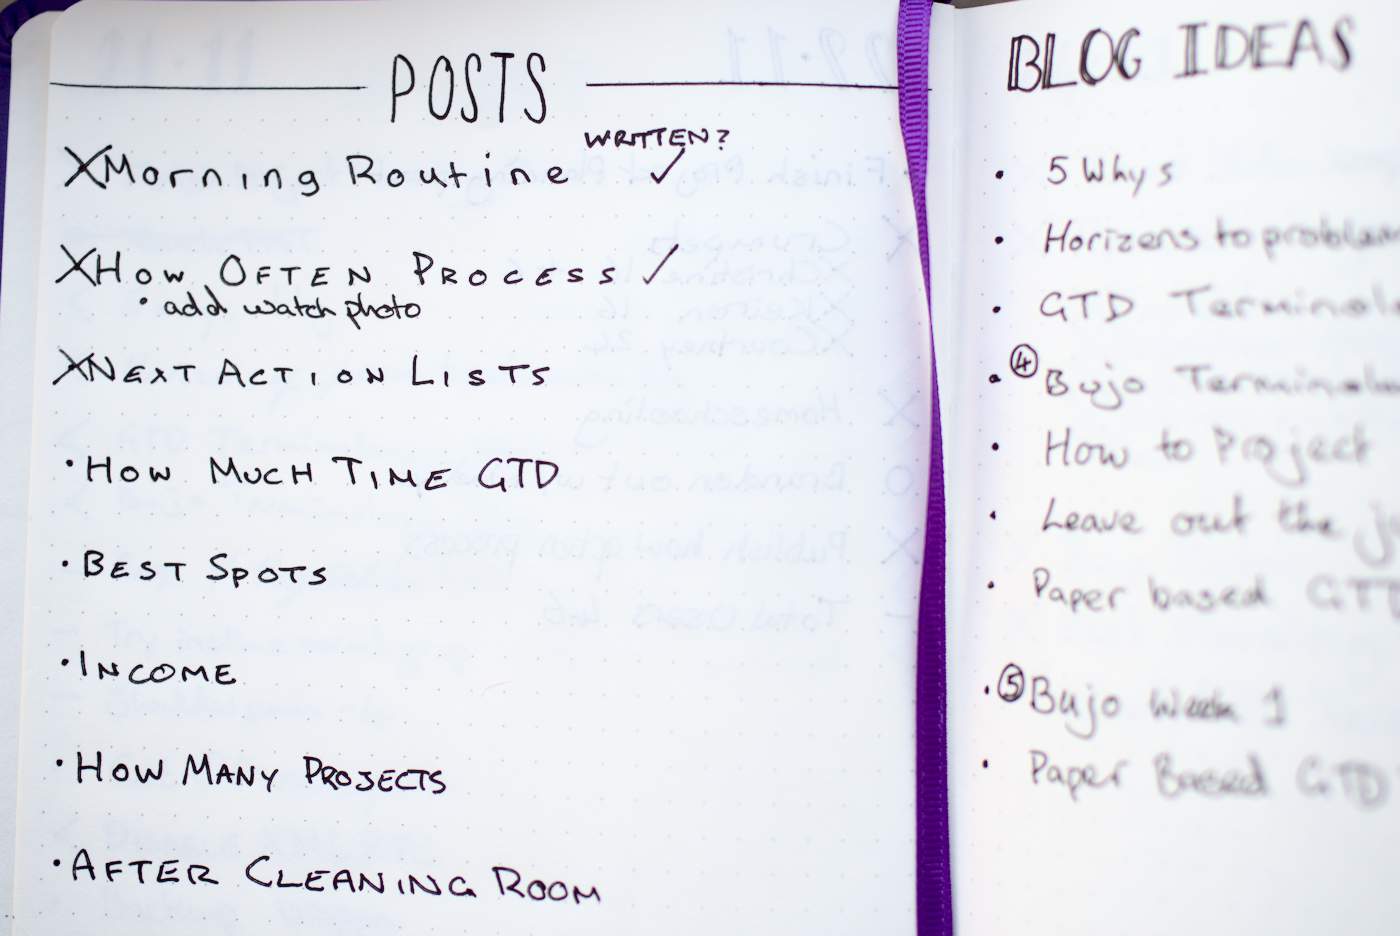 POSTS
WRITTEN?
XMorning Routine ✓
XHOW OFTEN PROCESS ✓
• add watch photo
XNEXT ACTION LISTS
• HOW MUCH TIME GTD
• BEST SPOTS
• INCOME
• HOW MANY PROJECTS
• AFTER CLEANING ROOM
BLOG IDEAS
• 5 Whys
• Horizens to
• GTD
• ④ Bujo
• How to Project
• Leave out the
• Paper based GTD
• ⑤ Bujo Week 1
• Paper Based GTD